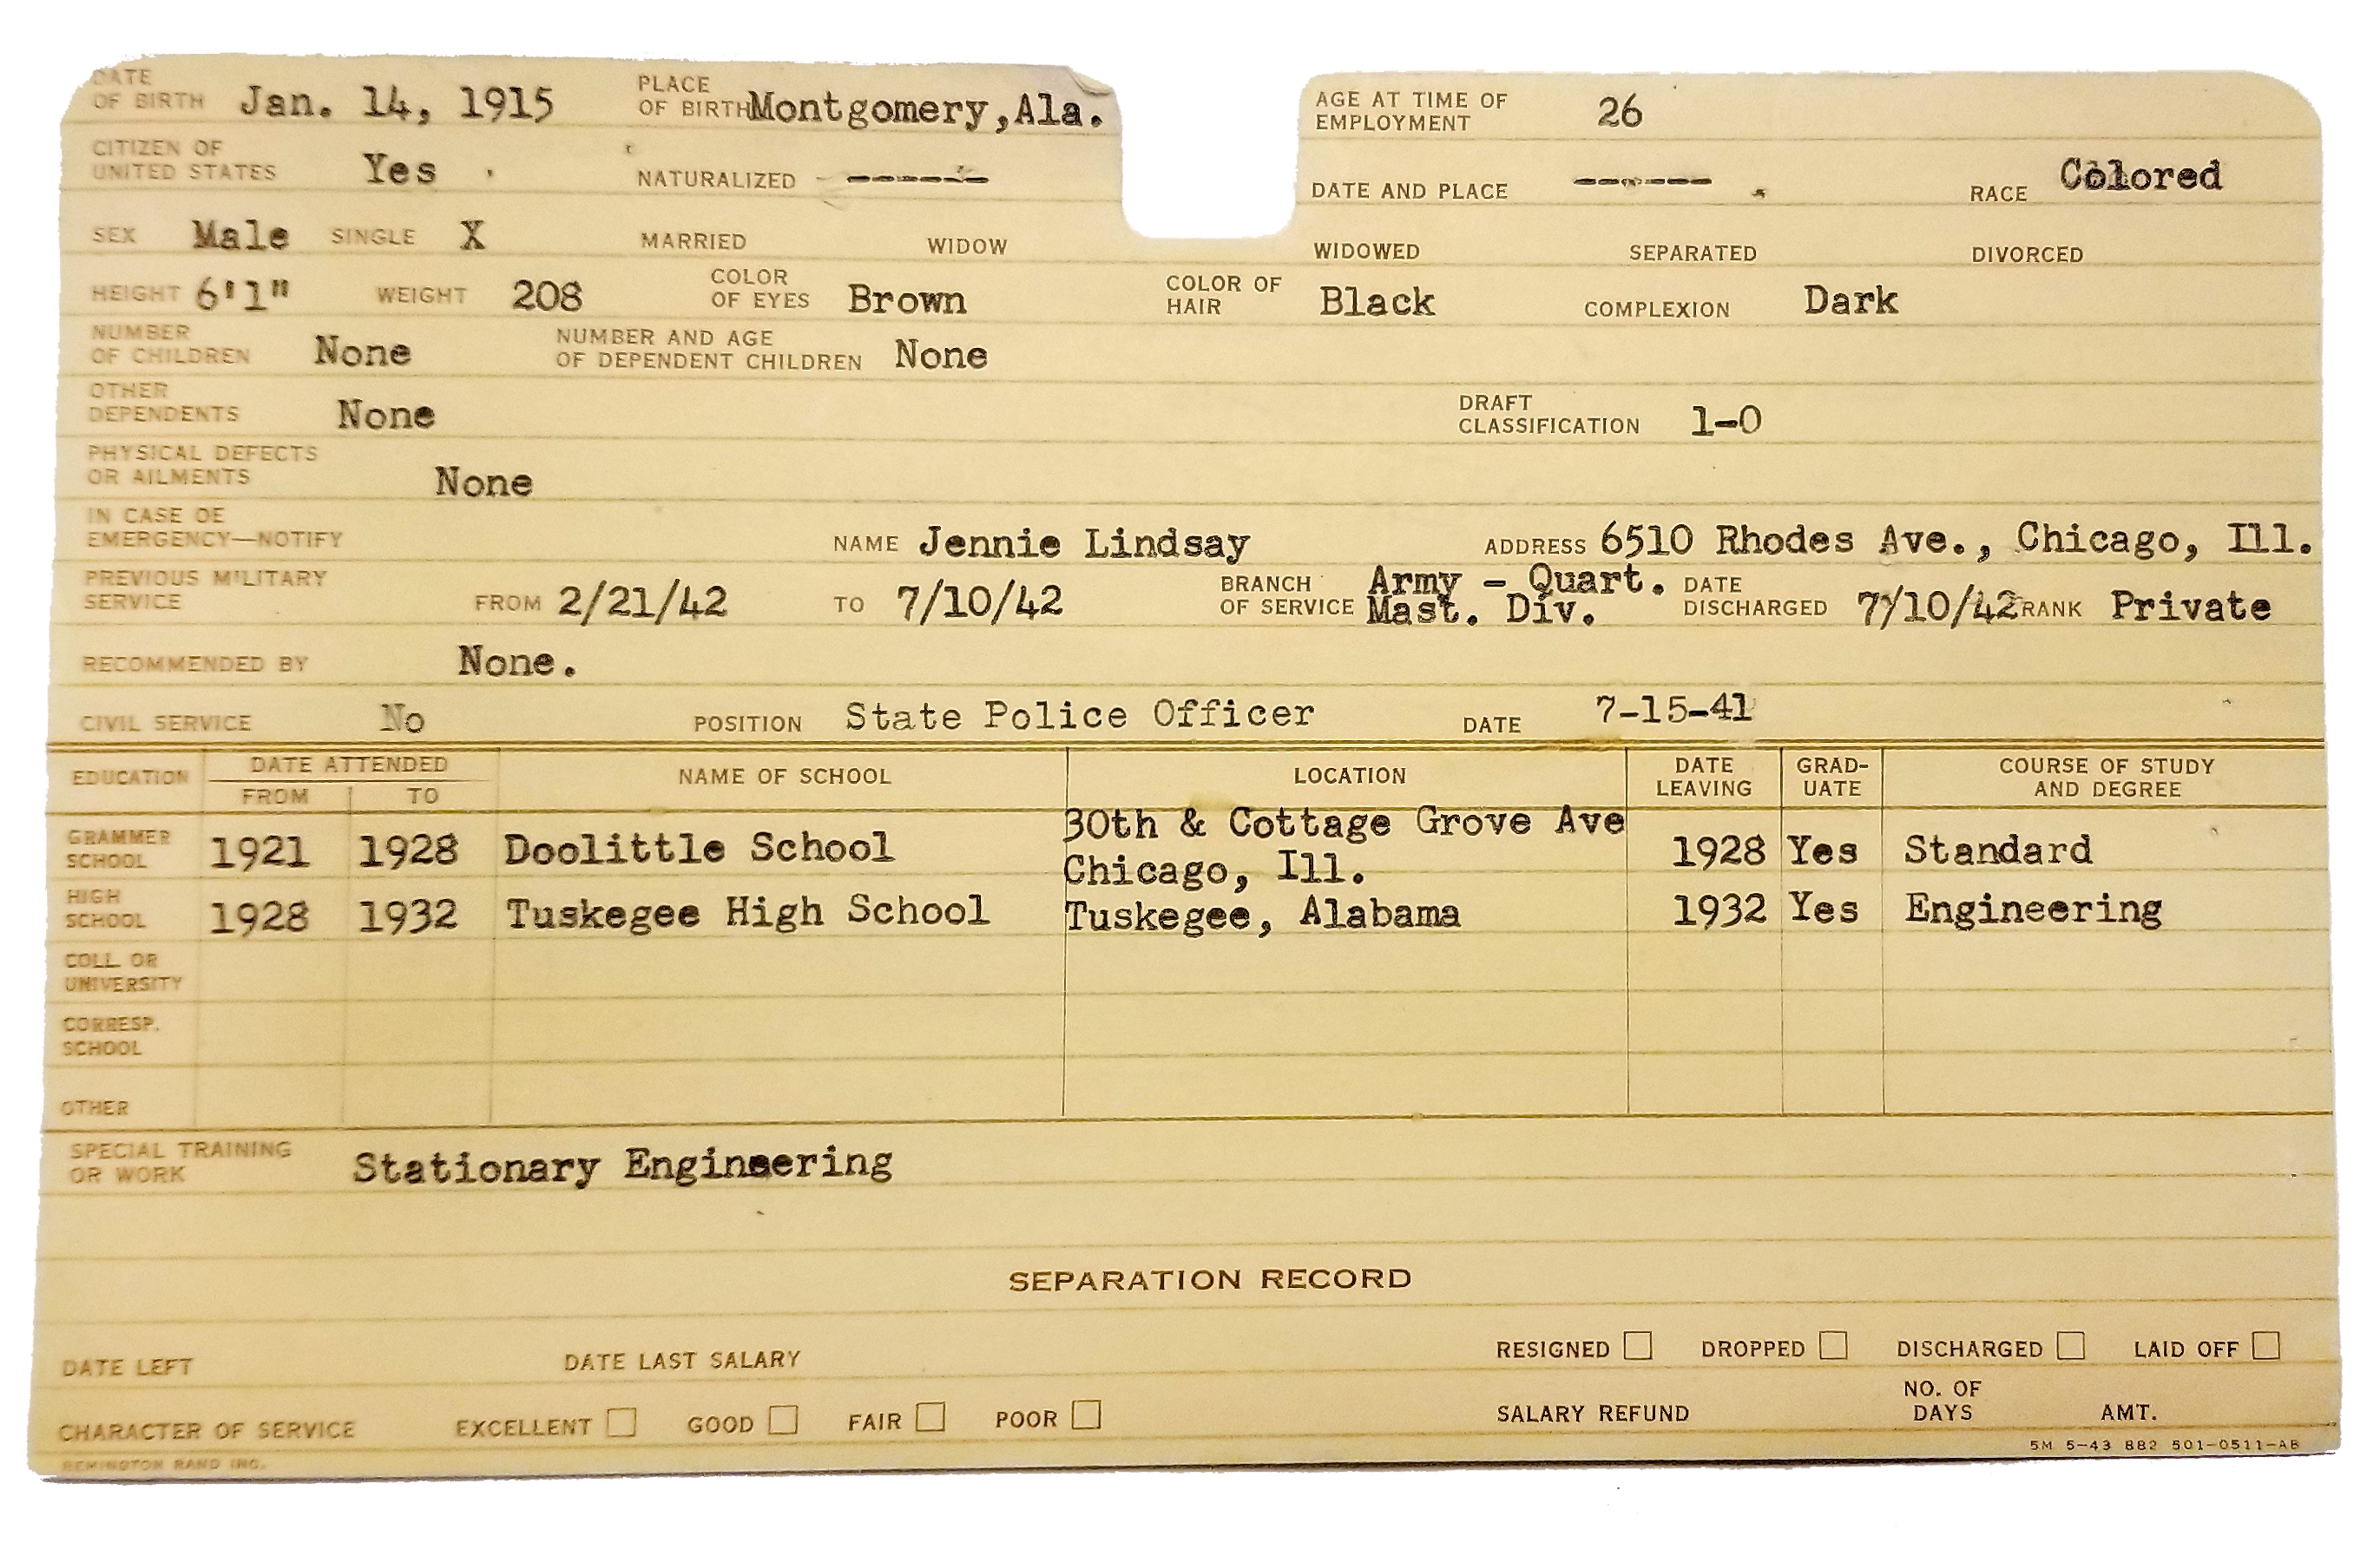 DATE OF BIRTH Jan. 14, 1915 PLACE OF BIRTH Montgomery,Ala. AGE AT TIME OF EMPLOYMENT 26
CITIZEN OF UNITED STATES Yes NATURALIZED ------ DATE AND PLACE ------ RACE Colored
SEX Male SINGLE X MARRIED WIDOW WIDOWED SEPARATED DIVORCED
HEIGHT 6'1" WEIGHT 208 COLOR OF EYES Brown COLOR OF HAIR Black COMPLEXION Dark
NUMBER OF CHILDREN None NUMBER AND AGE OF DEPENDENT CHILDREN None
OTHER DEPENDENTS None DRAFT CLASSIFICATION 1-O
PHYSICAL DEFECTS OR AILMENTS None
IN CASE OF EMERGENCY—NOTIFY NAME Jennie Lindsay ADDRESS 6510 Rhodes Ave., Chicago, Ill.
PREVIOUS MILITARY SERVICE FROM 2/21/42 TO 7/10/42 BRANCH OF SERVICE Army - Quart. Mast. Div. DATE DISCHARGED 7/10/42 RANK Private
RECOMMENDED BY None.
CIVIL SERVICE No POSITION State Police Officer DATE 7-15-41
EDUCATION DATE ATTENDED FROM TO NAME OF SCHOOL LOCATION DATE LEAVING GRAD-UATE COURSE OF STUDY AND DEGREE
GRAMMER SCHOOL 1921 1928 Doolittle School 30th & Cottage Grove Ave Chicago, Ill. 1928 Yes Standard
HIGH SCHOOL 1928 1932 Tuskegee High School Tuskegee, Alabama 1932 Yes Engineering
COLL. OR UNIVERSITY
CORRESP. SCHOOL
OTHER
SPECIAL TRAINING OR WORK Stationary Engineering
SEPARATION RECORD
DATE LEFT DATE LAST SALARY RESIGNED DROPPED DISCHARGED LAID OFF
CHARACTER OF SERVICE EXCELLENT GOOD FAIR POOR SALARY REFUND NO. OF DAYS AMT.
REMINGTON RAND INC. 5M 5-43 882 501-0511-AB